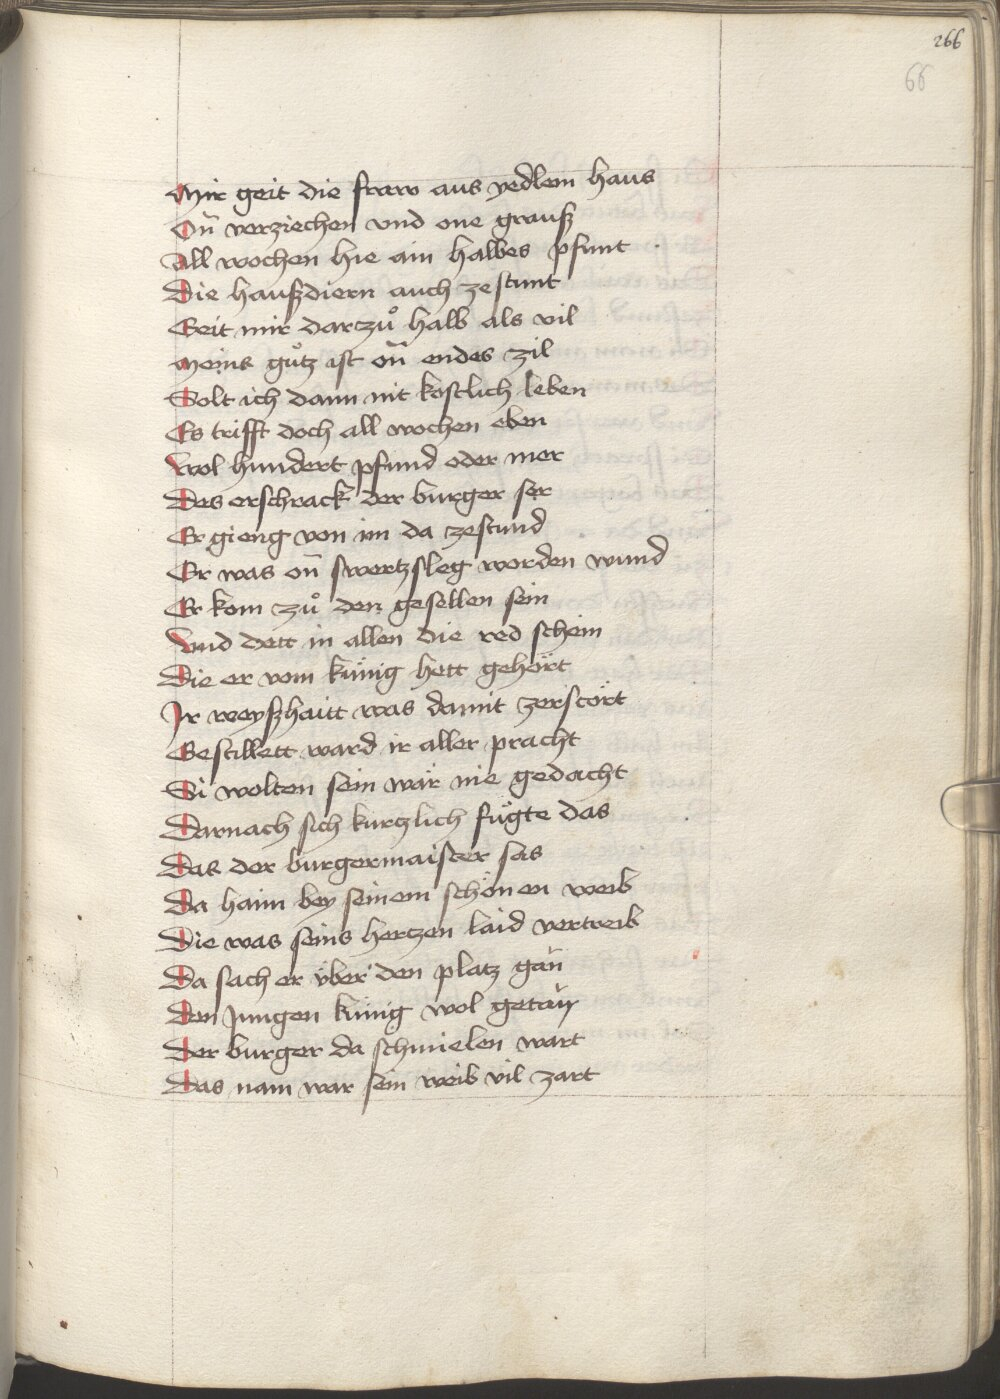 266
66
Mir geit die fraw aus yedlem haus
On̄ verziechen vnd one grauß
All wochen hie ain halbes pfunt
Die haußdiern auch zestunt
Geit mir darzuͦ halb als vil
Meins guͦtz ist on̄ endes zil
Solt ich dann nit kostlich leben
Es trifft doch all wochen eben
Wol hundert pfund oder mer
Des erschrack der burger ser
Er gieng von im da zestund
Er was on̄ swertzsleg worden wund
Er kom zuͦ den gesellen sein
Vnd dett in allen die red schein
Die er vom künig hett gehört
Jr weyßhaitt was damit zerstört
Gestillett ward ir aller pracht
Si wolten sein wär nie gedacht
Darnach sich kurczlich fuͤgte das
Das der burgermaister sas
Da haim bey seinem schönen weib
Die was seins herczen laid vertreib
Da sach er über den platz gän
Den Jungen künig wol getän
Der burger da schmielen wart
Das nam war sein weib vil zart